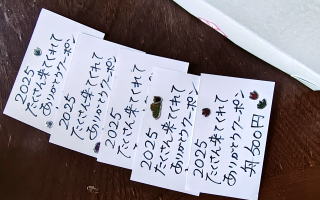 2025
たくさん来てくれて
ありがとうクーポン
2025
たくさん来てくれて
ありがとうクーポン
2025
たくさん来てくれて
2025
たくさん来てくれて
ありがとうクーポン
2025
たくさん来てくれて
ありがとうクーポン
600円